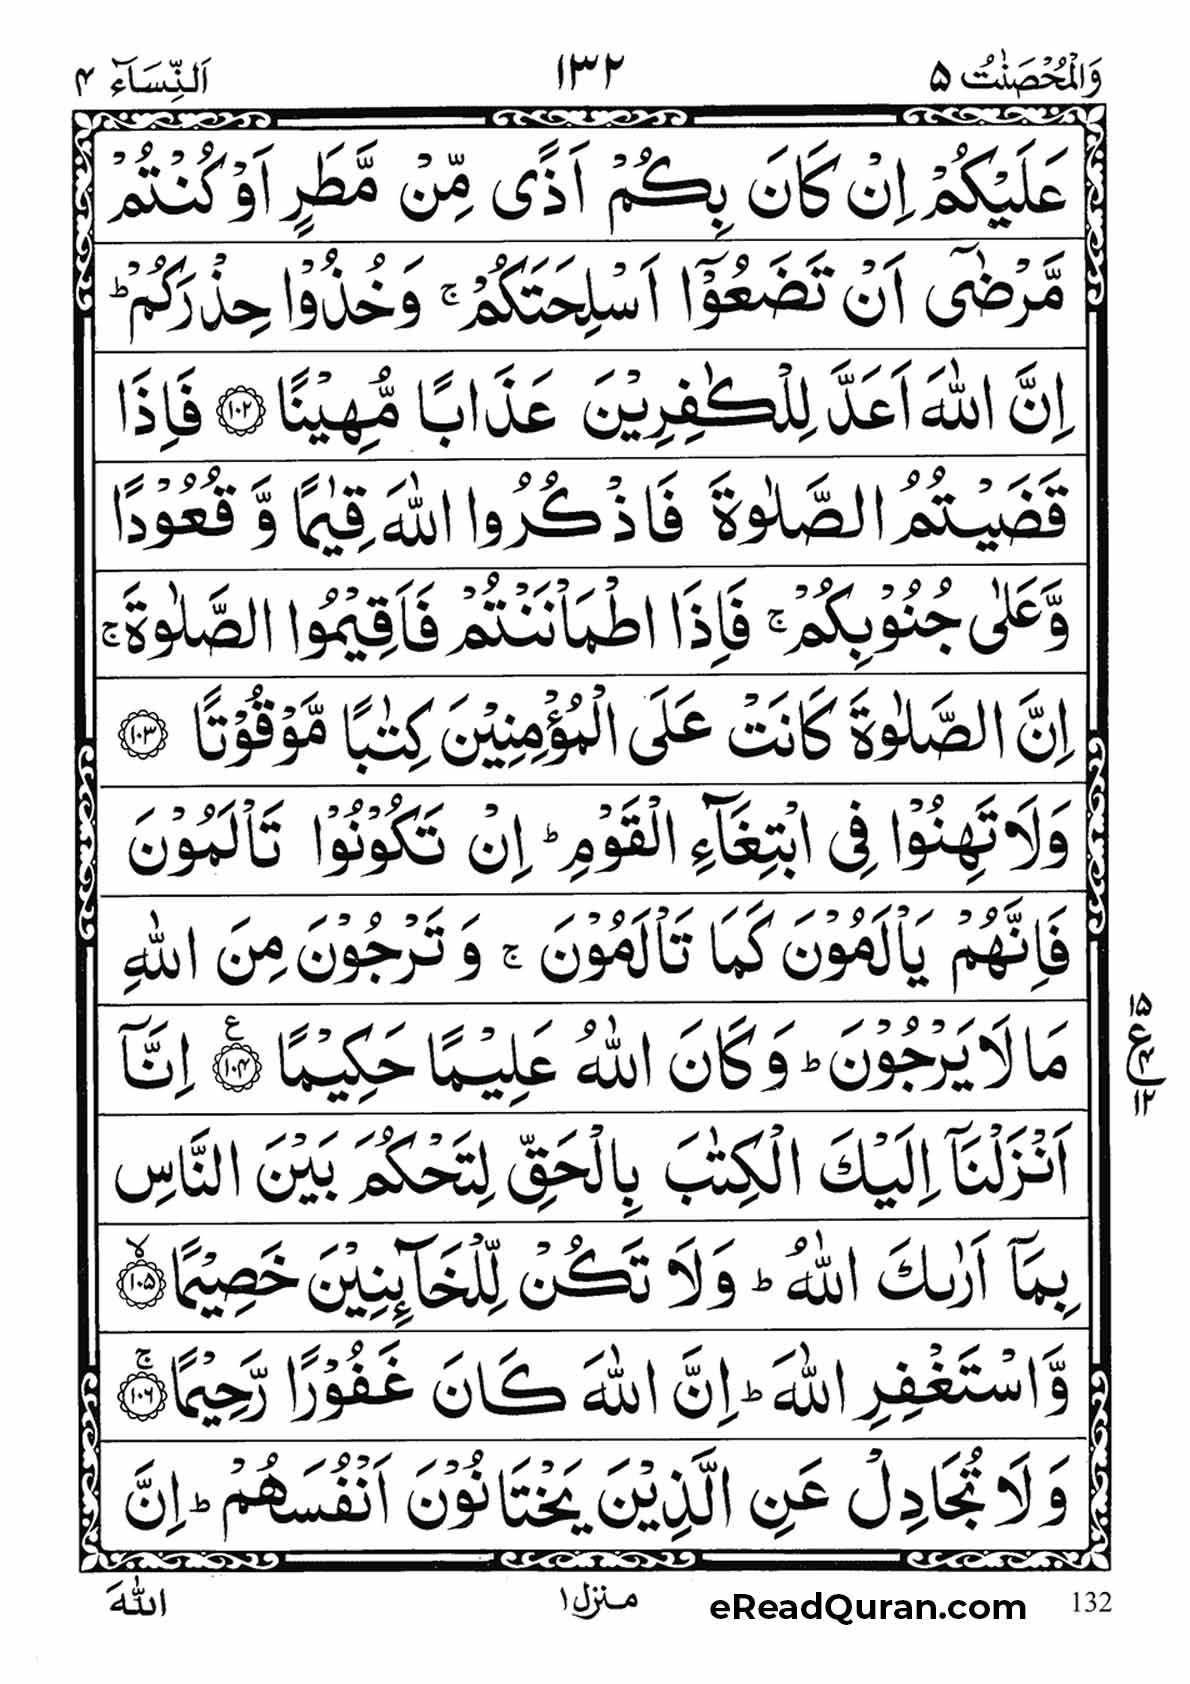 وَالْمُحْصَنٰتُ ۵ ۱۳۲ اَلنِّسَآء ۴
عَلَيْكُمْ اِنْ كَانَ بِكُمْ اَذًى مِّنْ مَّطَرٍ اَوْ كُنْتُمْ
مَّرْضٰۤى اَنْ تَضَعُوْۤا اَسْلِحَتَكُمْ ۚ وَخُذُوْا حِذْرَكُمْ ؕ
اِنَّ اللّٰهَ اَعَدَّ لِلْكٰفِرِيْنَ عَذَابًا مُّهِيْنًا ۱۰۲ فَاِذَا
قَضَيْتُمُ الصَّلٰوةَ فَاذْكُرُوا اللّٰهَ قِيٰمًا وَّ قُعُوْدًا
وَّعَلٰى جُنُوْبِكُمْ ۚ فَاِذَا اطْمَاْنَنْتُمْ فَاَقِيْمُوا الصَّلٰوةَ ۚ
اِنَّ الصَّلٰوةَ كَانَتْ عَلَى الْمُؤْمِنِيْنَ كِتٰبًا مَّوْقُوْتًا ۱۰۳
وَلَا تَهِنُوْا فِى ابْتِغَآءِ الْقَوْمِ ؕ اِنْ تَكُوْنُوْا تَاْلَمُوْنَ
فَاِنَّهُمْ يَاْلَمُوْنَ كَمَا تَاْلَمُوْنَ ۚ وَ تَرْجُوْنَ مِنَ اللّٰهِ
مَا لَا يَرْجُوْنَ ؕ وَ كَانَ اللّٰهُ عَلِيْمًا حَكِيْمًا ۱۰۴ ع اِنَّاۤ
۱۵
ع
۴
۱۲
اَنْزَلْنَاۤ اِلَيْكَ الْكِتٰبَ بِالْحَقِّ لِتَحْكُمَ بَيْنَ النَّاسِ
بِمَاۤ اَرٰىكَ اللّٰهُ ؕ وَلَا تَكُنْ لِّلْخَآئِنِيْنَ خَصِيْمًا ۱۰۵ ۙ
وَّاسْتَغْفِرِ اللّٰهَ ؕ اِنَّ اللّٰهَ كَانَ غَفُوْرًا رَّحِيْمًا ۱۰۶ ۚ
وَلَا تُجَادِلْ عَنِ الَّذِيْنَ يَخْتَانُوْنَ اَنْفُسَهُمْ ؕ اِنَّ
اللّٰهَ منزل ۱ eReadQuran.com 132